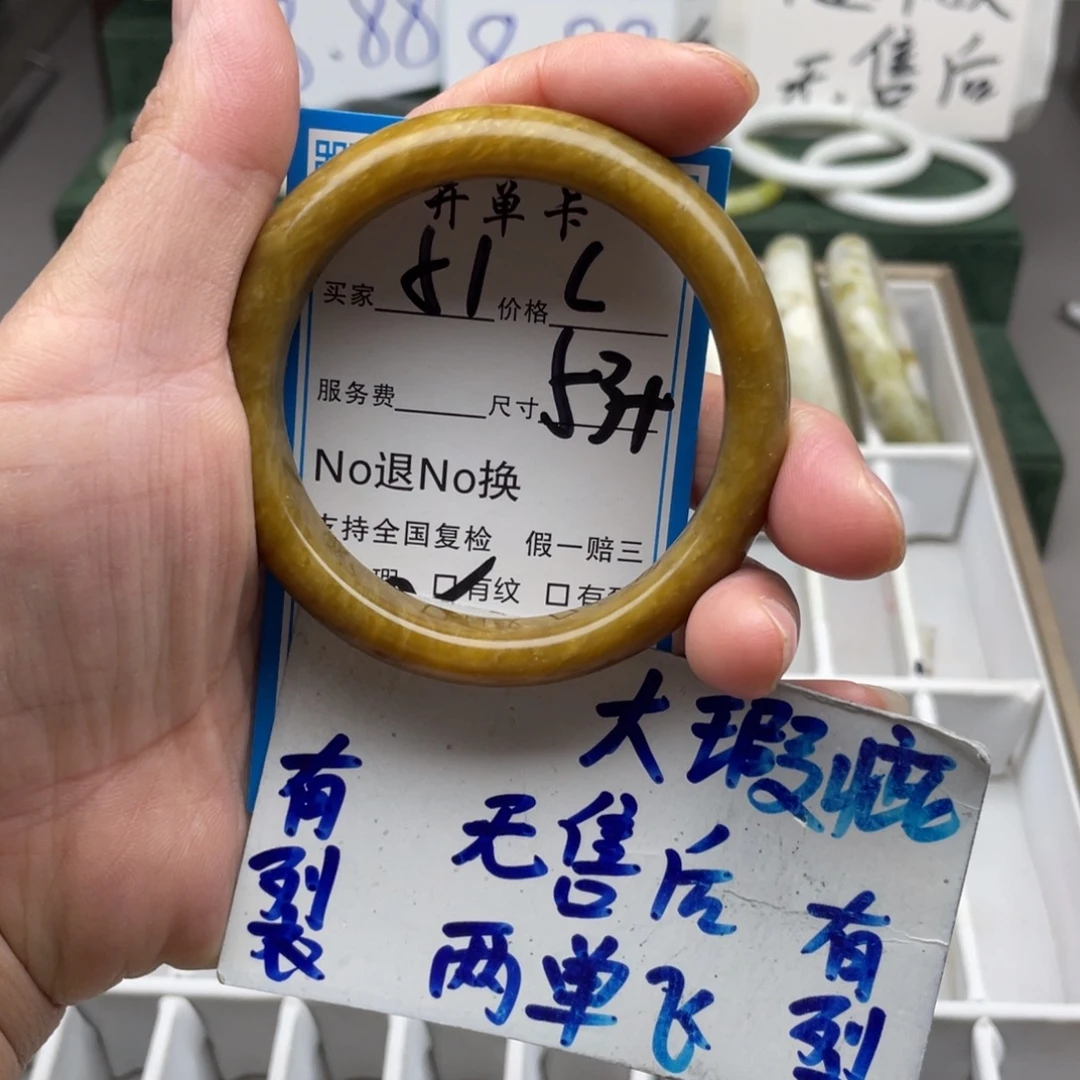 8.88
无售后
开单卡
买家 81 价格
服务费 尺寸 53+
No退No换
支持全国复检 假一赔三
有纹 有
大瑕疵
有裂
无售后
两单飞
有裂